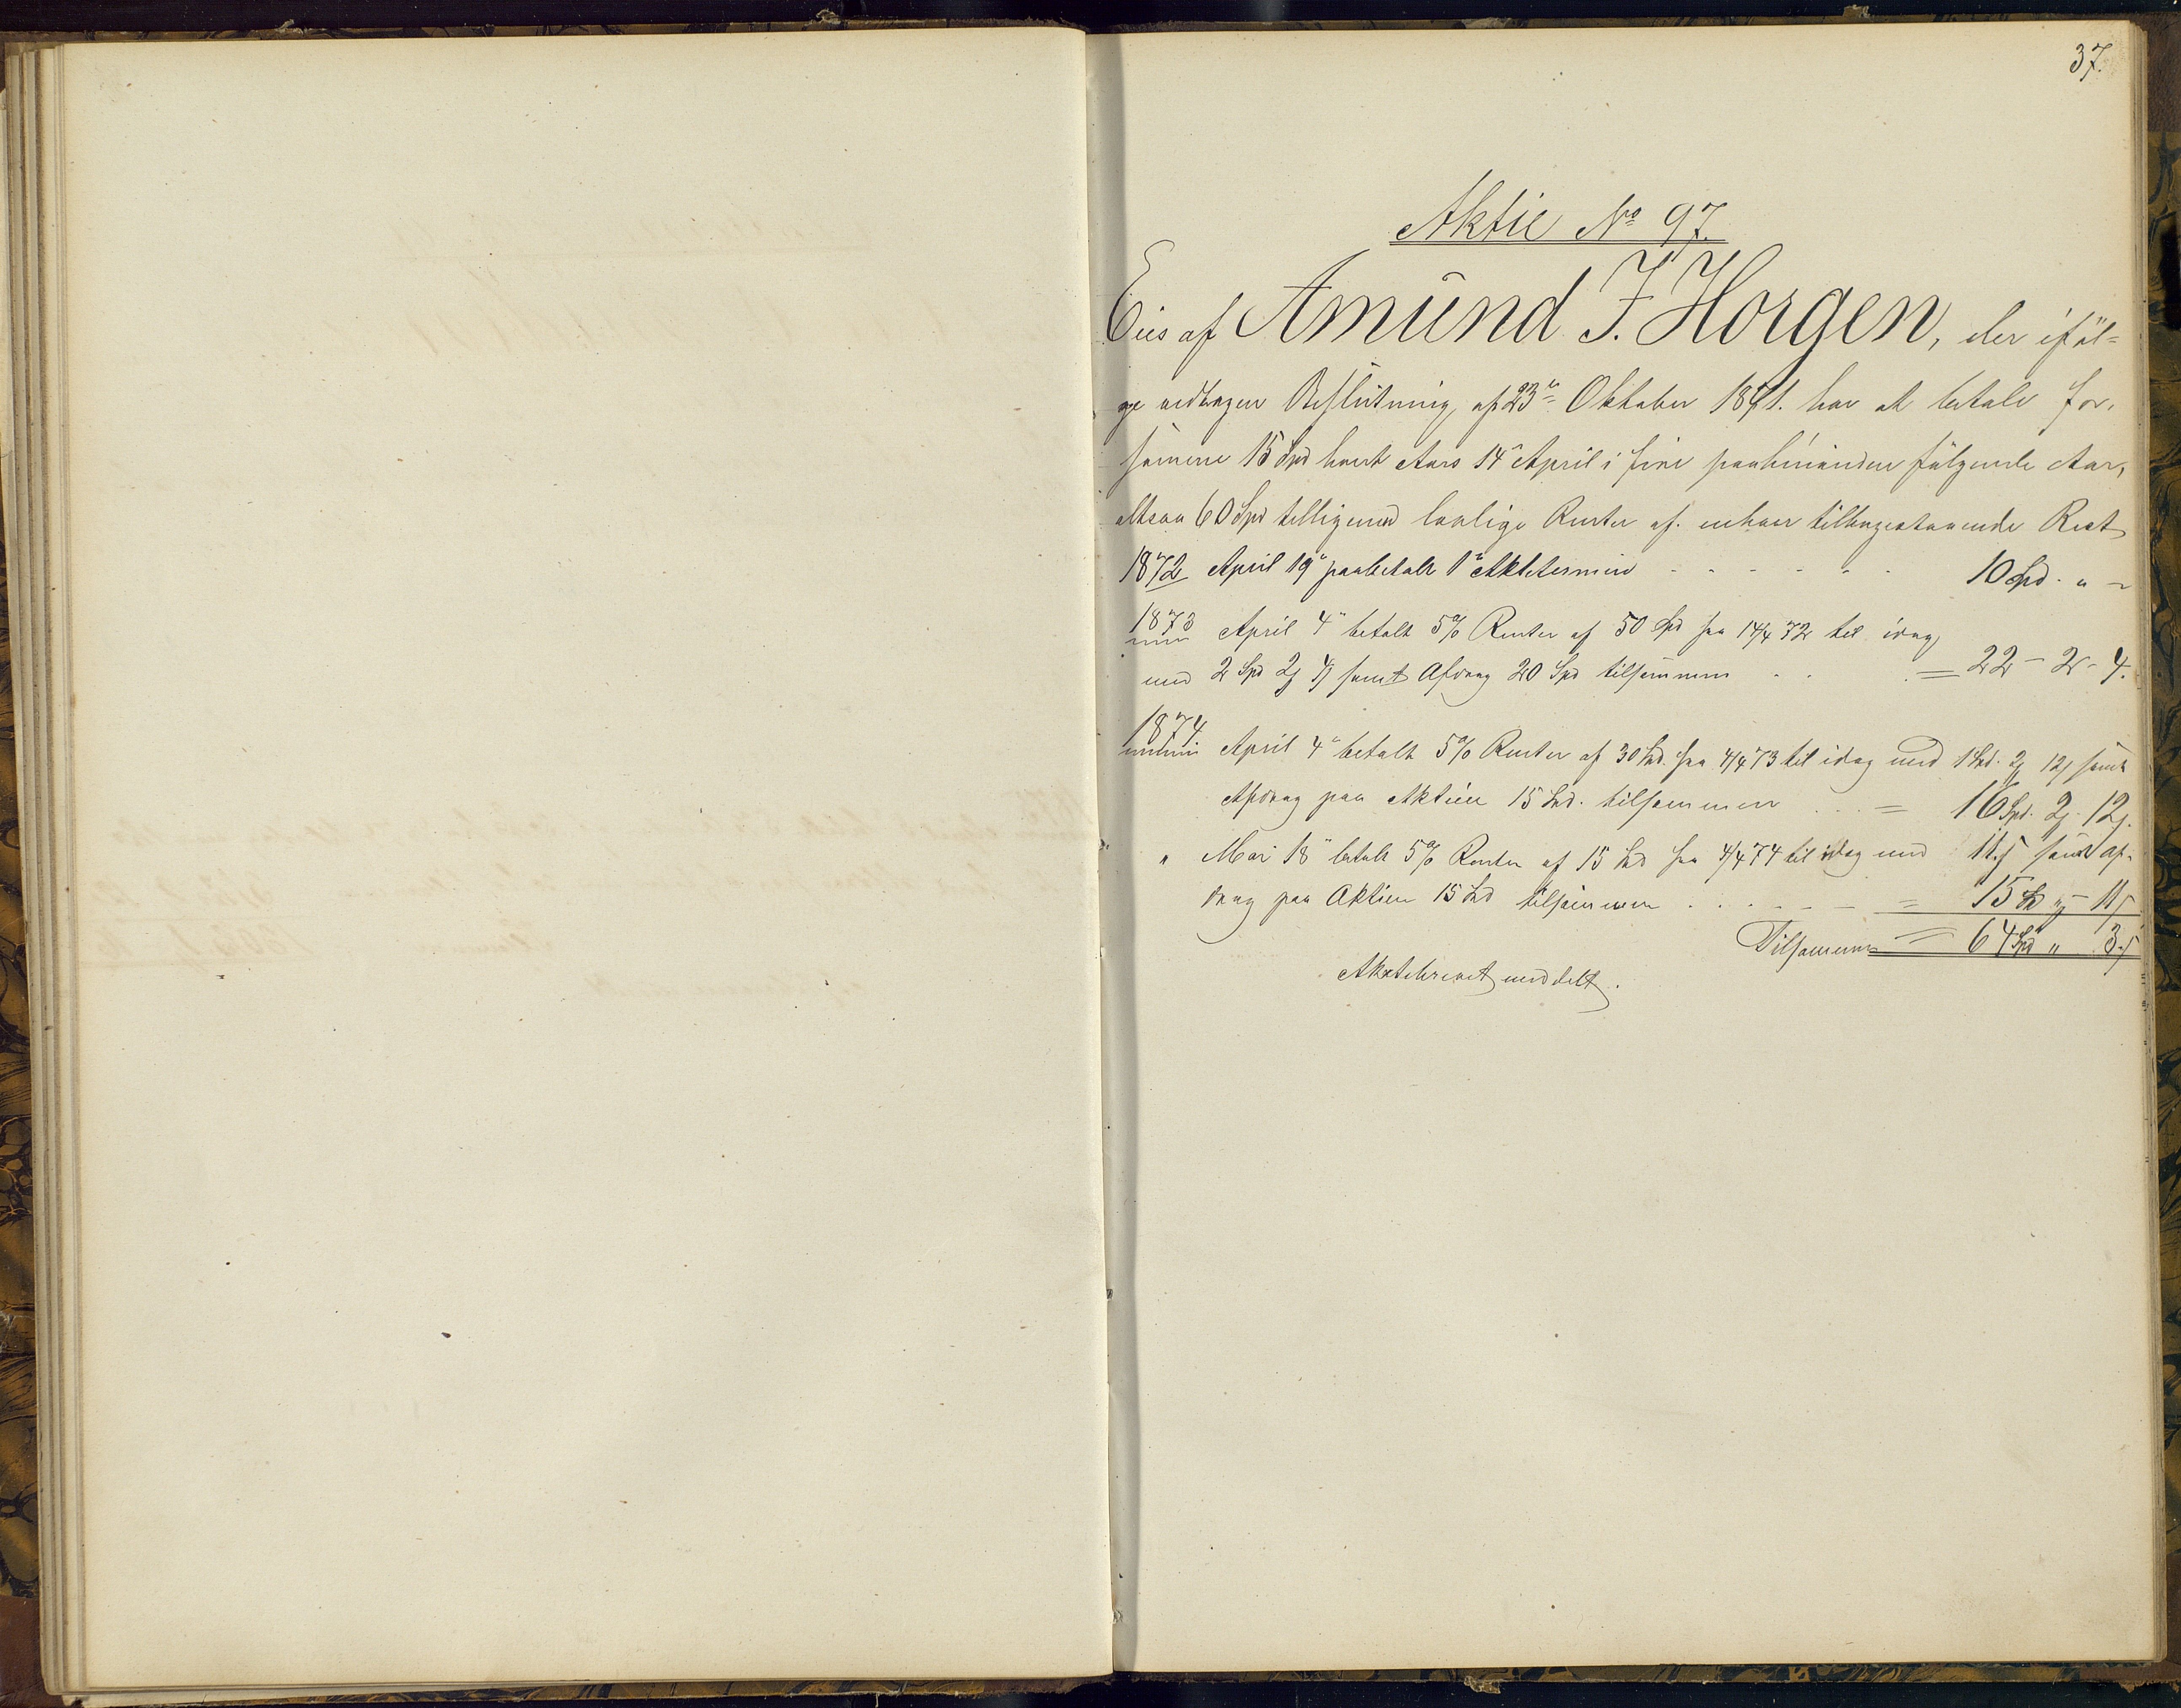 37.
Aktie No 97.
Eies af Amund J. Horgen, der iföl=
ge vedtagen Beslutning af 23de Oktober 1871. har at betale for
samme 15 Spd hvert Aars 14 April i fire paahinanden fölgende Aar,
altsaa 60 Spd tilligemed lovlige Renter af enhver tilbagestaaende Rest
1872 April 19" paabetalt 1ste Aktitermin - - - - - - 10 Spd. " -
1873 April 4" betalt 5% Renter af 50 Spd fra 14/4 72 til idag
med 2 Spd 2 ß 4 ß samt Afdrag 20 Spd tilsammen . . = 22 - 2 - 4.
1874 April 4" betalt 5% Renter af 30 Spd. fra 4/4 73 til idag med 1 Spd. 2 ß 12 ß samt
Afdrag paa Aktien 15 Spd. tilsammen . . . = 16 Spd. 2 ß. 12 ß.
" Mai 18" betalt 5% Renter af 15 Spd fra 4/4 74 til idag med 11 ß samt Af-
drag paa Aktien 15 Spd tilsammen . . . - - - = 15 Spd " - 11 ß
Tilsammen = 64 Spd " 3 ß
Aktiebrevet meddelt.